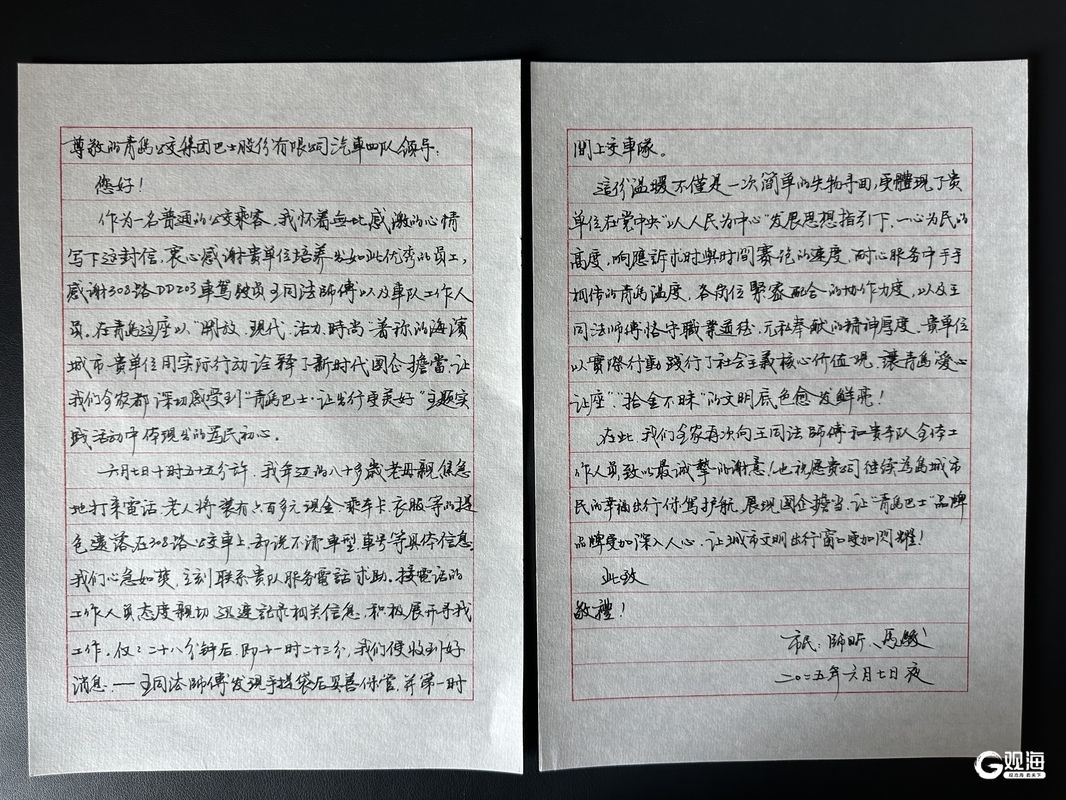 尊敬的青岛公交集团巴士股份有限公司汽車四队领导：
您好！
作为一名普通的公交乘客，我怀着無比感激的心情
写下这封信，衷心感谢貴单位培养出如此优秀的员工，
感谢308路DD203車驾驶员王同法師傅以及車队工作人
员。在青岛这座以“開放、現代、活力、時尚”著称的海濱
城市，貴单位用实际行动诠释了新时代國企擔當，让
我们全家都深切感受到“青島巴士·让出行更美好”主题实
践活动中体現出的為民初心。
六月七日十时五十五分许，我年迈的八十多歲老母親焦急
地打来電话，老人将装有六百多元現金、乘车卡、衣服等的提
包遗落在308路公交車上，却说不清車型、車号等具体信息。
我们心急如焚，立刻联系贵队服务電話求助。接電话的
工作人员态度親切，迅速記录相关信息，积极展开寻找
工作。仅仅二十八分钟后，即十一时二十三分，我们便收到好
消息——王同法師傅发現手提袋后妥善保管，并第一时
間上交車隊。
這份温暖不僅是一次简单的失物寻回，更體現了贵
单位在党中央“以人民为中心”发展思想指引下，一心为民的
高度，响應訴求时與时間赛跑的速度，耐心服务中手手
相传的青島温度，各岗位緊密配合的协作力度，以及王
同法师傅恪守職業道德、无私奉献的精神厚度。貴单位
以實際行動践行了社会主義核心价值观，讓青島“愛心
让座”、“拾金不昧”的文明底色愈发鲜亮！
在此，我们全家再次向王同法師傅和貴车队全体工
作人員致以最诚摯的谢意！也祝愿贵公司继续為島城市
民的幸福出行保驾护航，展現國企擔当，让“青島巴士”品牌
品牌更加深入人心，让城市文明出行窗口更加閃耀！
此致
敬禮！
市民：師昕、馬駿
二〇二五年六月七日夜
观海
观沧海 看天下